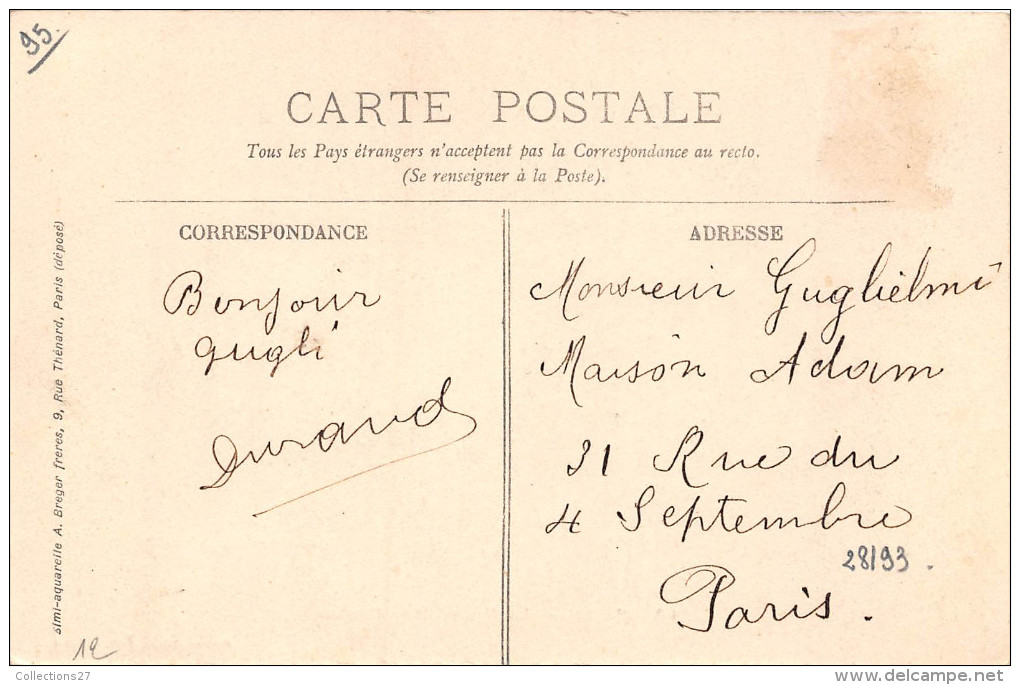 95.
CARTE POSTALE
Tous les Pays étrangers n'acceptent pas la Correspondance au recto.
(Se renseigner à la Poste).
CORRESPONDANCE
Bonjour
gugli
Durand
ADRESSE
Monsieur Guglielmi
Maison Adam
31 Rue du
4 Septembre
28193.
Paris.
Simi-aquarelle A. Breger freres, 9, Rue Thénard, Paris (déposé)
12
Collections27
delcampe.net